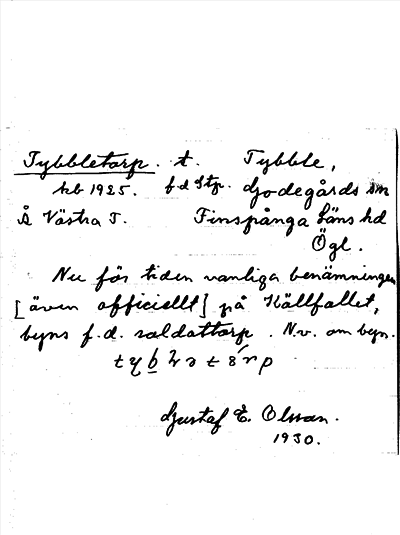 Tybbletorp. t. Tybble,
kb 1925. f.d. Stp. Godegårds sn
Å Västra T. Finspånga läns hd
Ögl.
Nu för tiden vanliga benämningen
[även officiellt] på Källfallet,
byns f.d. soldattorp. N.v. om byn.
Gustaf E. Olsson.
1930.